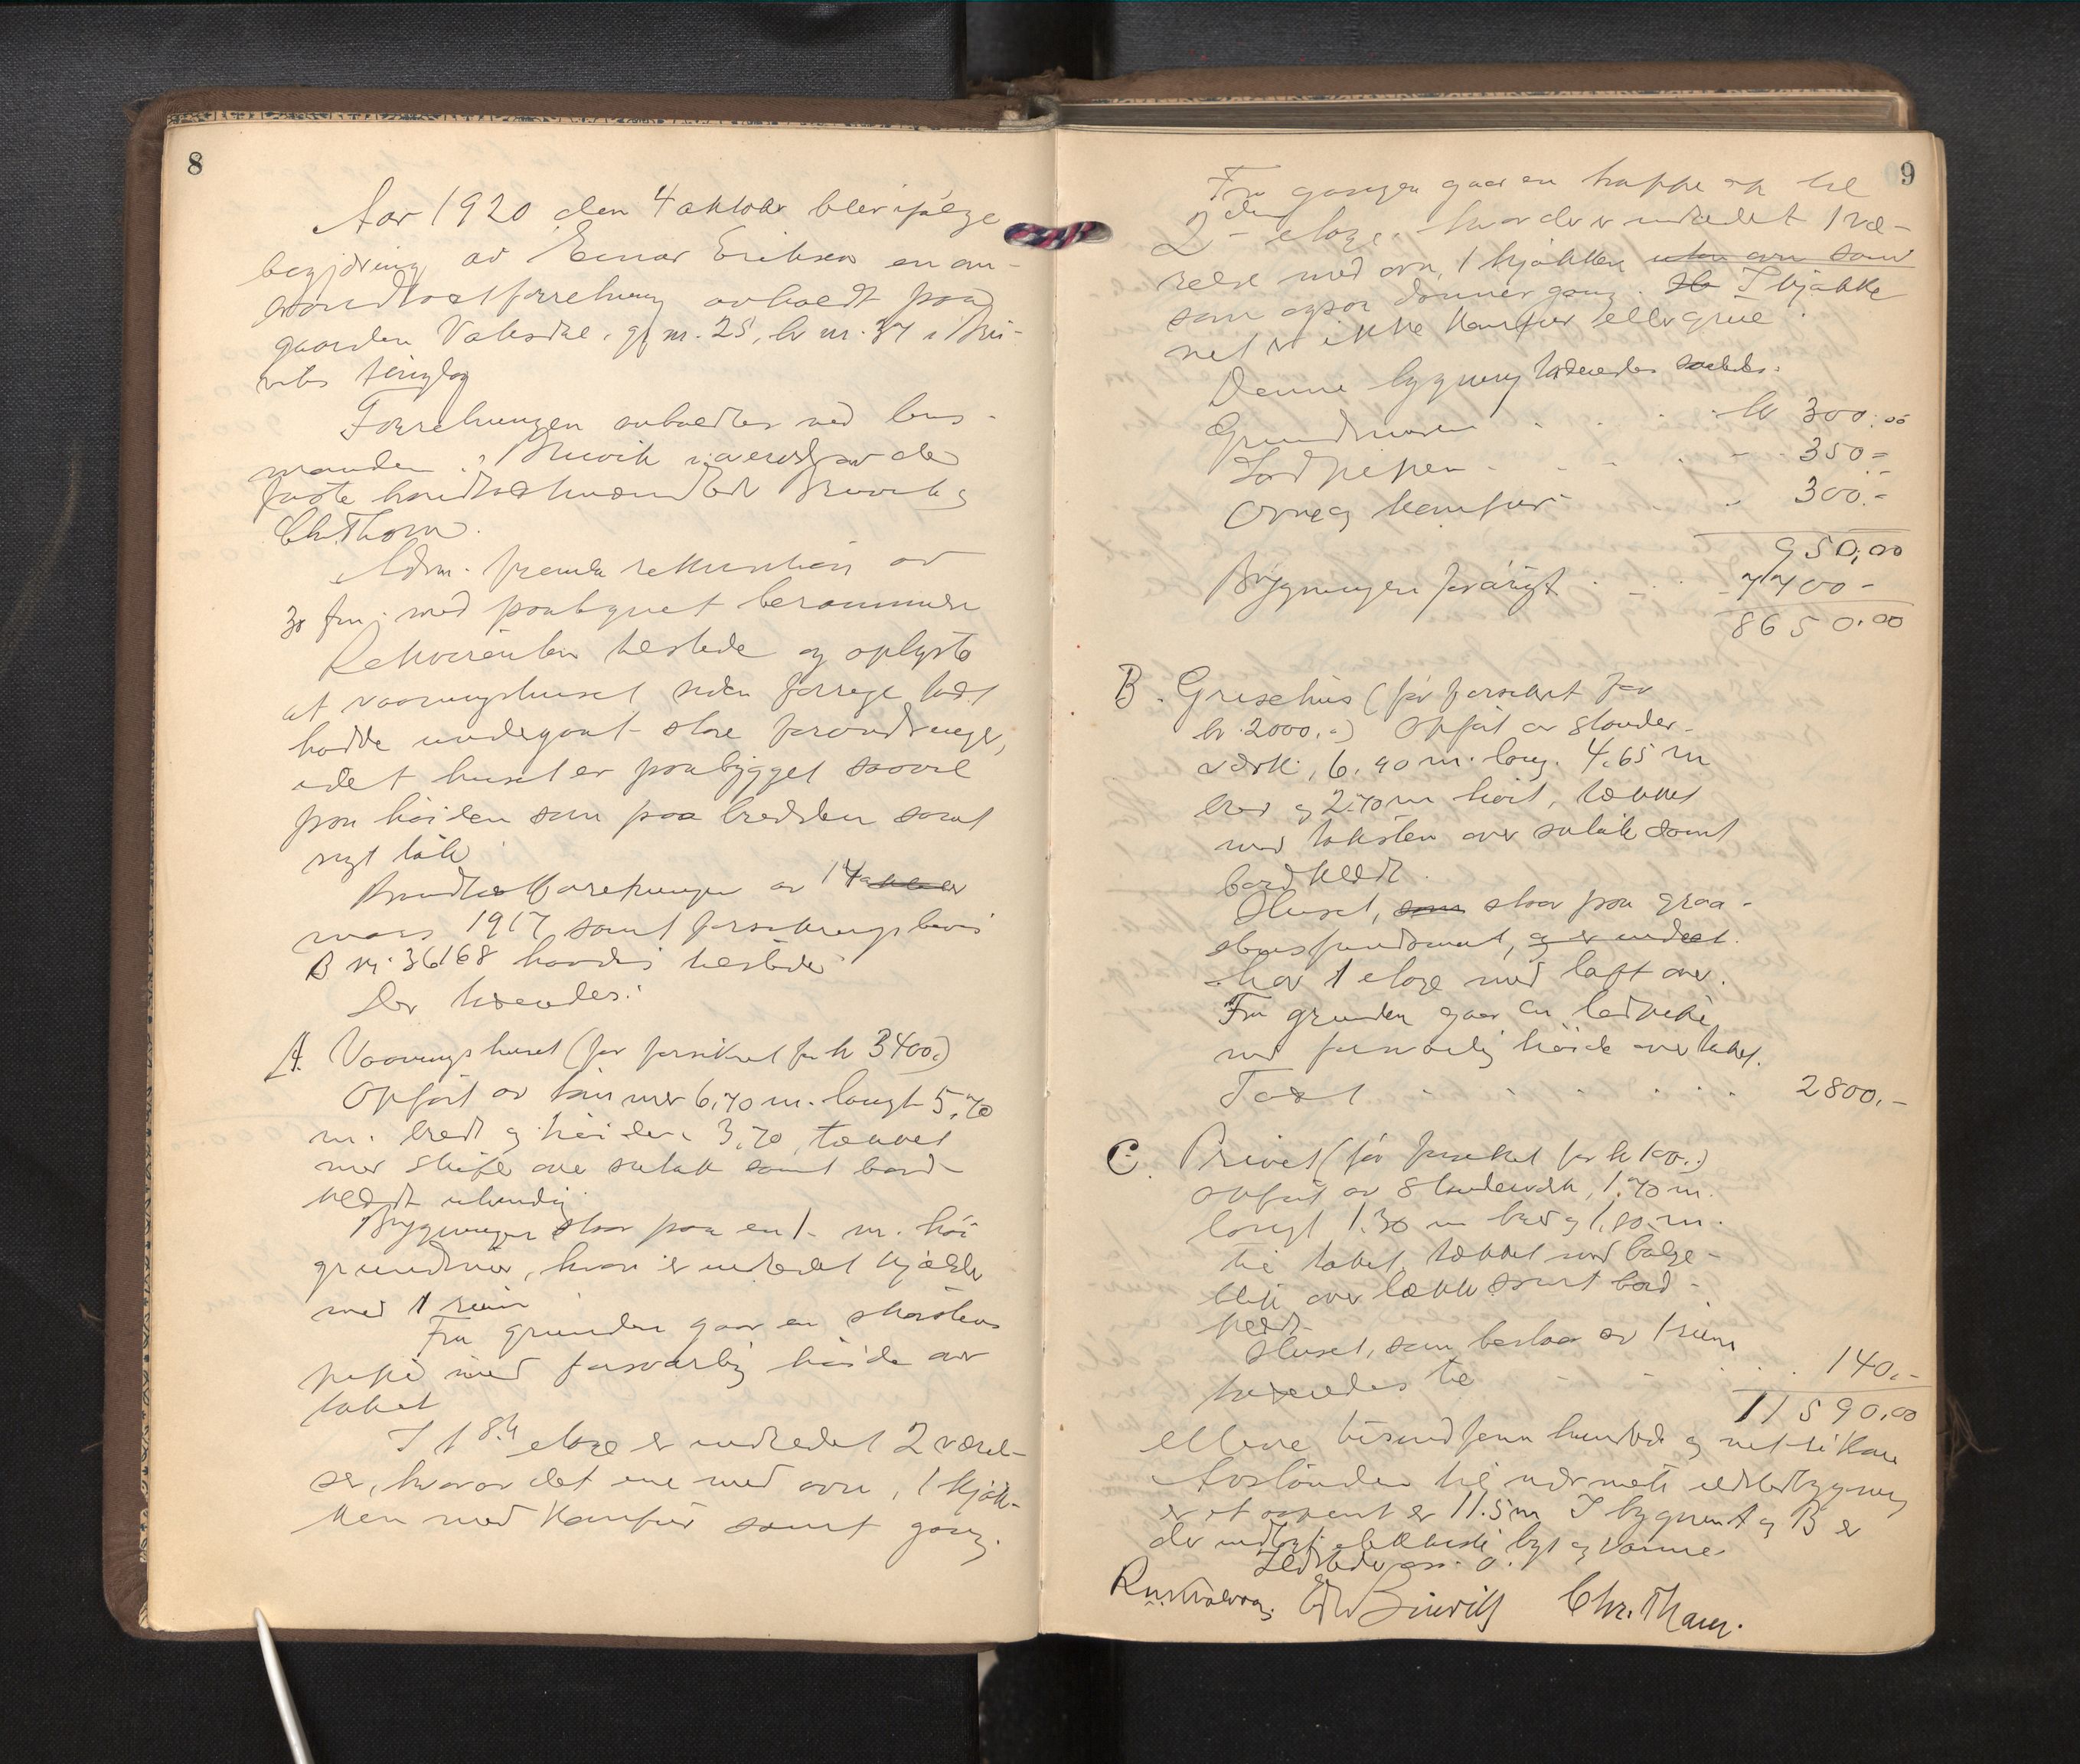 8
Aar 1920 den 4 oktober blev ifølge
begjæring av Einar Eriksen en om-
brandtaxtforretning avholdt paa
gaarden Vabsdal, g. nr. 25, br nr. 37 i Bru-
viks tinglag
Forretningen avholdtes ved lens-
manden i Bruvik i overvær av de
faste brandtakstmænd Bruvik og
Chr. Thom.
Adm. fremla rekvisition av
30 f.m. med paategnet berammelse
Rekvirenten tilstede og oplyste
at vaaningshuset siden forrige takst
hadde undergaat store forandringer,
idet huset er paabygget saavel
paa høiden som paa bredden samt
nyt tak
Brandtakstforretningen av 14
mars 1917 samt forsikringsbevis
B nr. 36168 havdes tilstede
Der taxeredes:
A. Vaaningshuset (før forsikret for kr 3400,-)
Opført av tømmer 6,70 m. langt 5,70
m. bredt og høiden 3,70, tækket
med skifer over sutak samt bord-
klædt utvendig
Bygningen staar paa en 1- m. høi
grundmur, hvori er indredet kjælder
med 1 rum
Fra grunden gaar en skorstens
pipe med forsvarlig høide over
taket
I 1ste etage er indredet 2 værel-
ser, hvorav det ene med ovn, 1 kjøk-
ken med komfur samt gang.
9
Fra gangen gaar en trappe op til
2den etage, hvor der er indredet 1 væ-
relse med ovn, 1 kjøkken uten ovn som
som ogsaa danner gang. I kjøkke
net er ikke komfur eller grue.
Denne bygning taxeredes saaledes:
Grundmuren . . . kr 300,00
Jordpipen - - - - 350,-
Ovn og komfur - 300,-
950,00
Bygningen forøvrigt - - 7700 -
8650,00
B. Grisehus (før forsikret for
kr. 2000,-) Opført av stænder-
værk, 6,90 m. lang. 4,65 m
bred og 2,70 m høit, tækket
med taksten over sutak samt
bordklædt.
Huset, som staar paa graa-
stensfundament, og er indret.
har 1 etage med loft over.
Fra grunden gaar en ledpipe
med forsvarlig høide over taket.
Taxt - - - - - - 2800,-
C. Privet (før forsikret for kr 100,-)
opført av stenderverk, 1,70 m.
langt 1,30 m bred og 1,80 m.
til taket, tækket med bølge-
blik over lække samt bord-
klædt.
Huset, som bestaar av 1 rum
taxeredes til - - . . 140,-
11590,00
elleve tusind fem hundrede og nitti Kr
Avstanden til nærmeste ildstedbygning
er 11.5 m I bygning A og B er
der indlagt elektrisk lys og varme.
Chr. Thom.